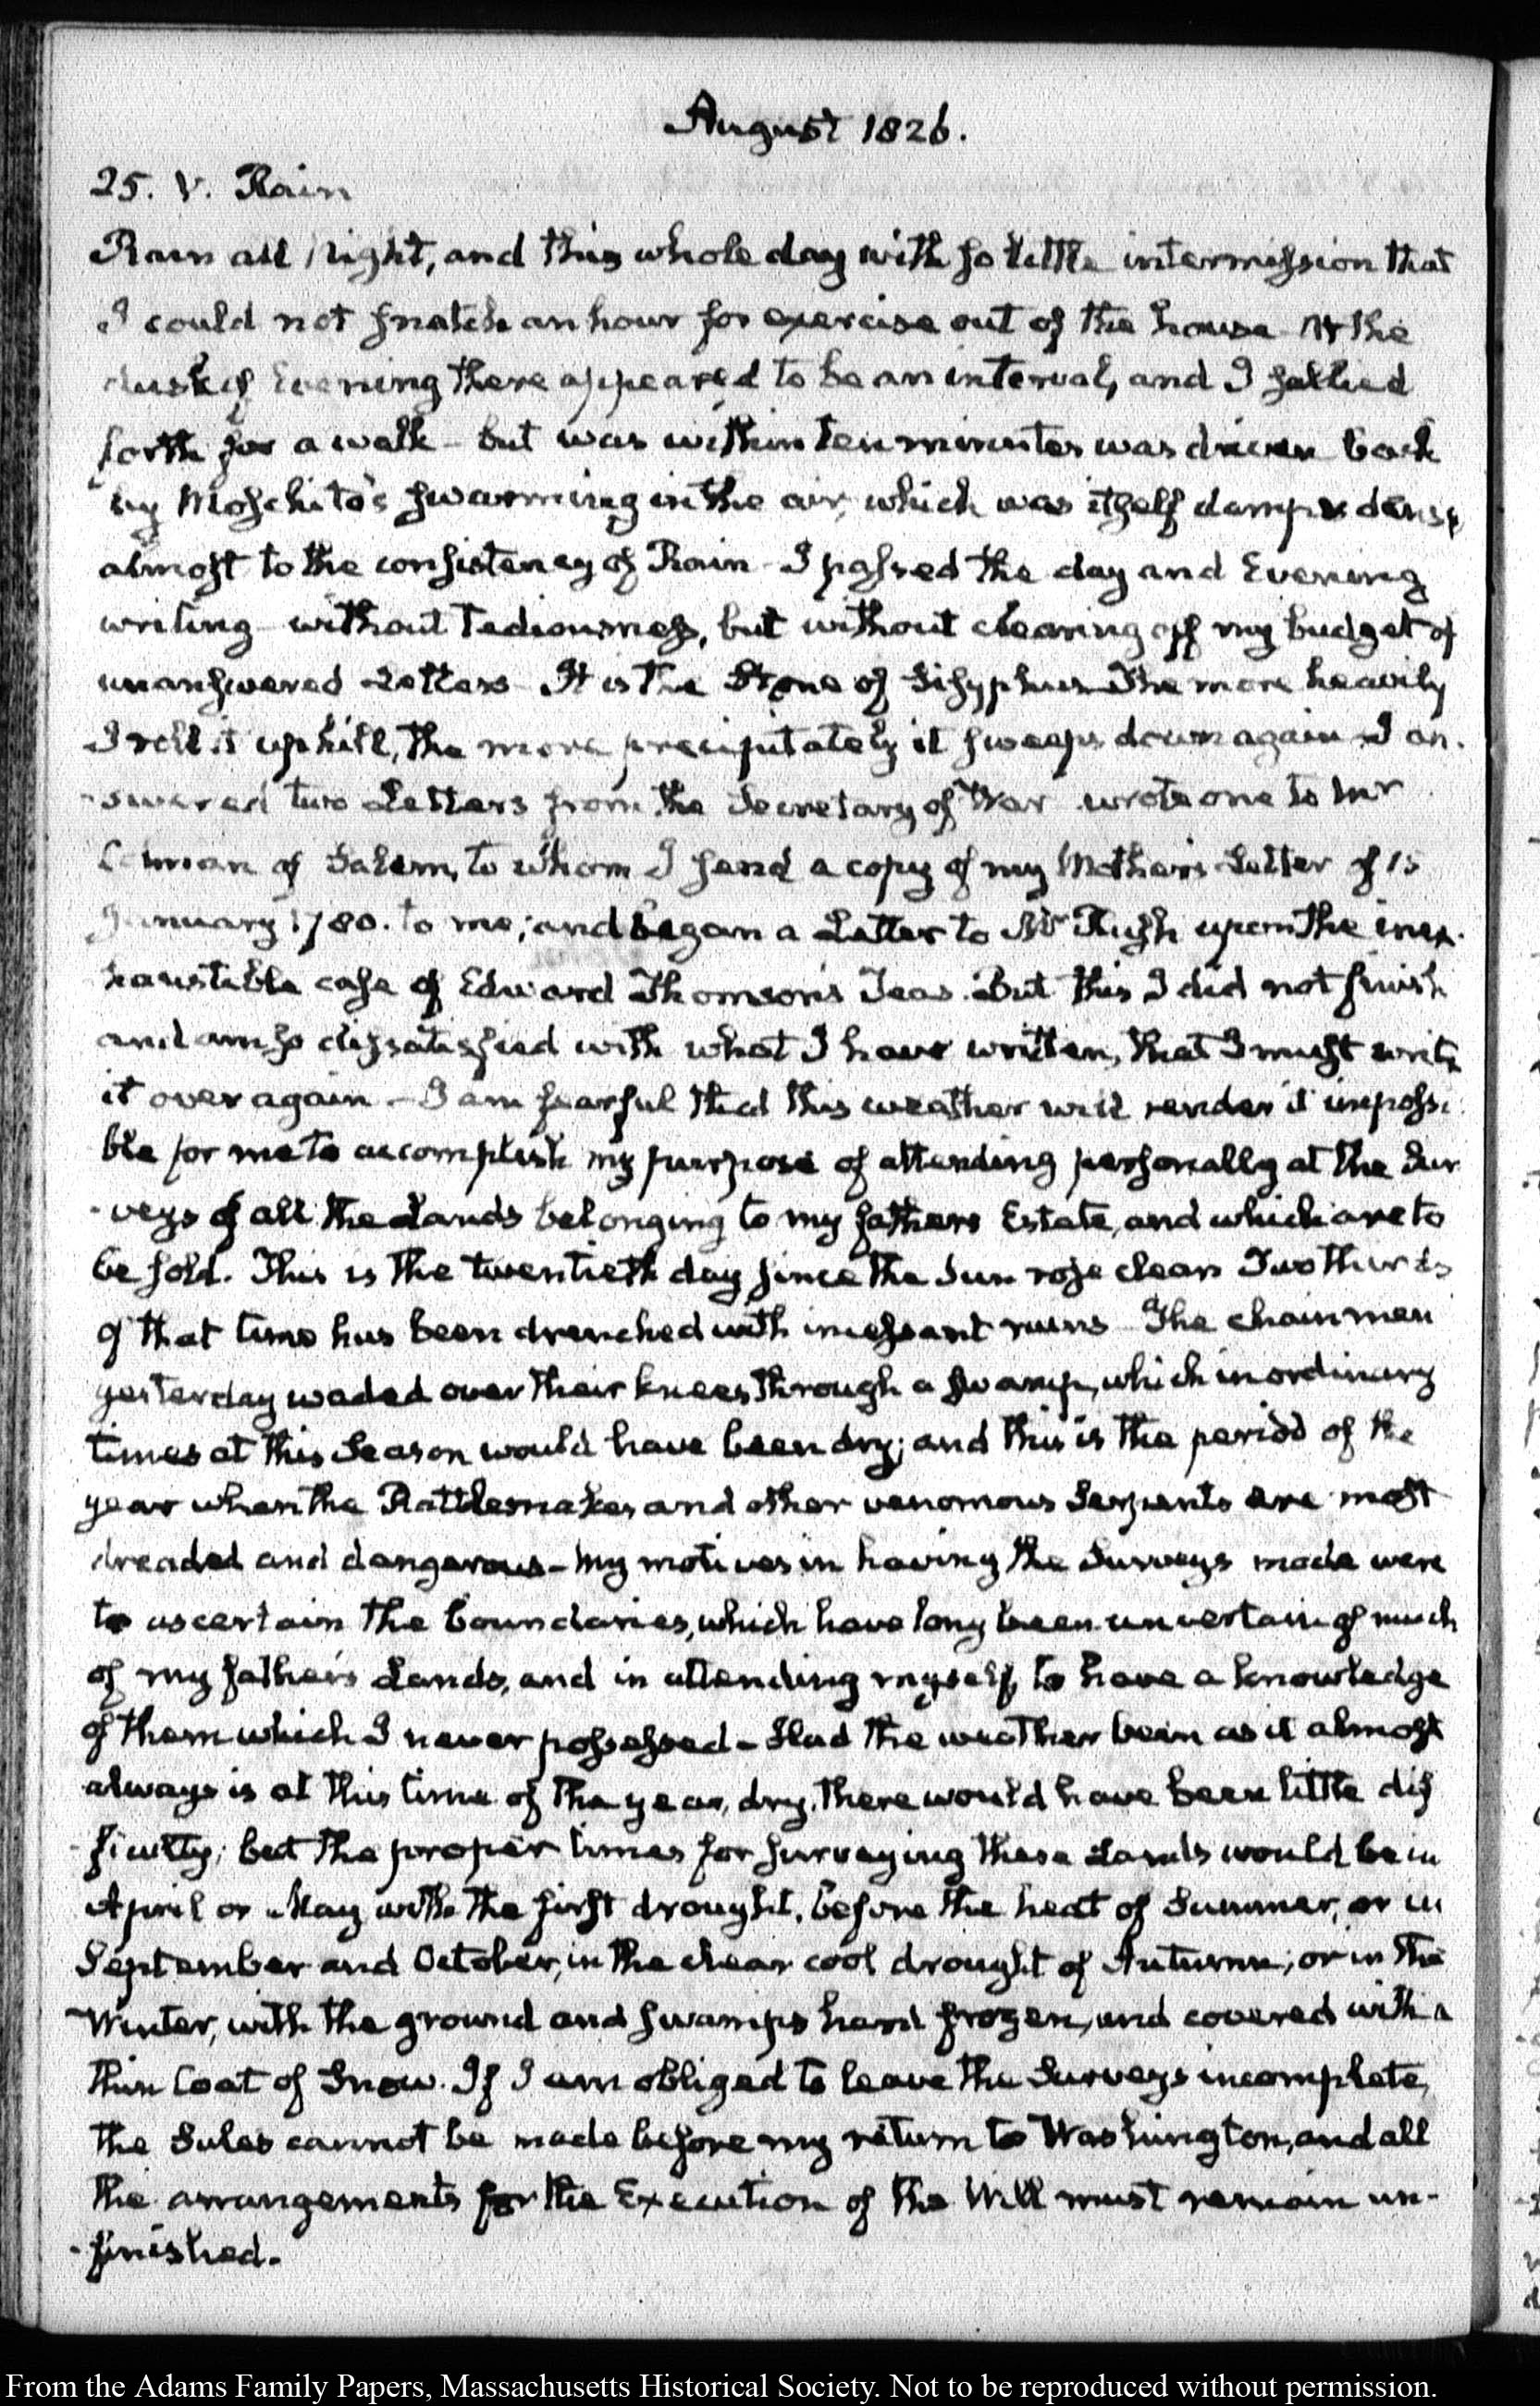 August 1826.
25. V. Rain
Rain all Night, and this whole day with so little intermission that
I could not snatch an hour for exercise out of the house - At the
dusk of Evening there appeared to be an interval, and I sallied
forth for a walk - but was within ten minutes was driven back
by Moschito's swarming in the air, which was itself damp & dense
almost to the consistency of Rain - I passed the day and Evening
writing - without tediousness, but without clearing off my budget of
unanswered Letters - It is the Stone of Sisyphus - The more heavily
I roll it up hill, the more precipitately it sweeps down again - I an-
-swered two Letters from the Secretary of War - wrote one to Mr
of Salem, to whom I send a copy of my Mother's Letter of 15
January 1780. to me; and began a Letter to Mr Rush upon the inex-
haustible case of Edward Thomson's Teas. But this I did not finish
and am so dissatisfied with what I have written, that I must write
it over again - I am fearful that this weather will render it impossi-
ble for me to accomplish my purpose of attending personally at the Sur
-veys of all the Lands belonging to my father's Estate, and which are to
be sold. This is the twentieth day since the Sun rose clear - Two thirds
of that time has been drenched with incessant rains - The chainmen
yesterday waded over their knees through a swamp, which in ordinary
times at this Season would have been dry; and this is the period of the
year when the Rattlesnakes and other venomous Serpents are most
dreaded and dangerous - My motives in having the Surveys made were
to ascertain the boundaries, which have long been uncertain of much
of my father's Lands, and in attending myself, to have a knowledge
of them which I never possessed - Had the weather been as it almost
always is at this time of the year, dry, there would have been little dif
-ficulty; but the proper times for surveying these Lands would be in
April or May with the first drought, before the heat of Summer, or in
September and October, in the clear cool drought of Autumn; or in the
Winter, with the ground and swamps hard frozen, and covered with a
thin Coat of Snow. If I am obliged to leave the Surveys incomplete,
the Sales cannot be made before my return to Washington, and all
the arrangements for the Execution of the Will must remain un-
-finished.
From the Adams Family Papers, Massachusetts Historical Society. Not to be reproduced without permission.